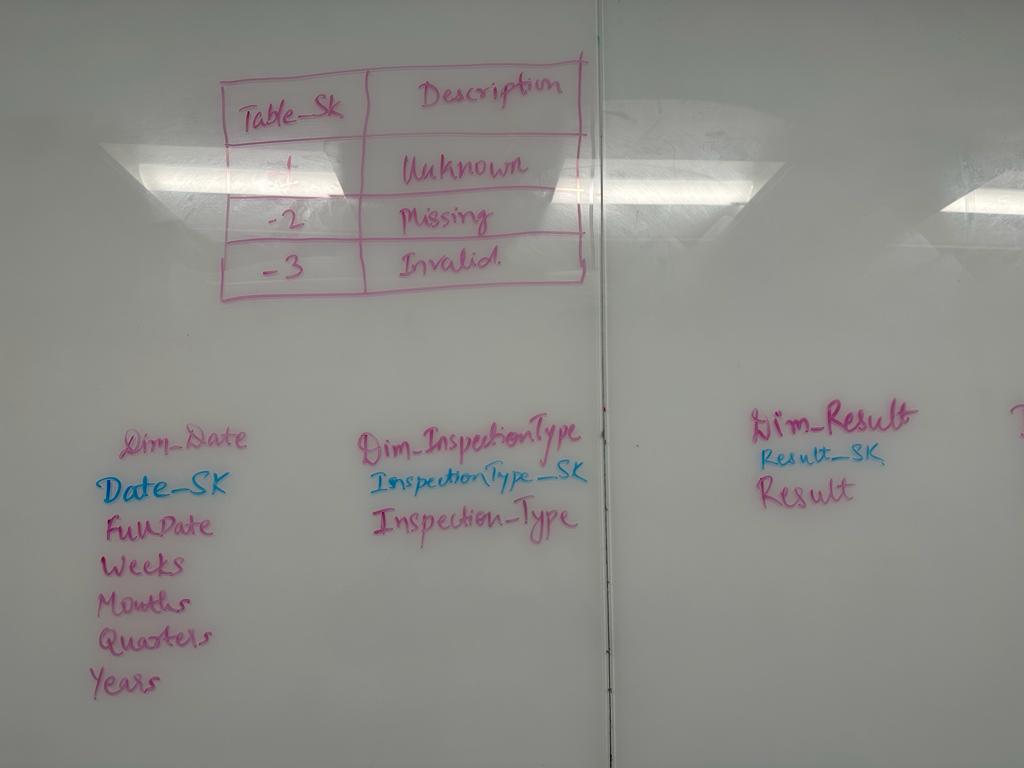 Table_Sk Description
-1 Unknown
-2 Missing
-3 Invalid.
Dim_Date
Date_SK
FullDate
Weeks
Months
Quarters
Years
Dim_InspectionType
InspectionType_SK
Inspection_Type
Dim_Result
Result_SK
Result